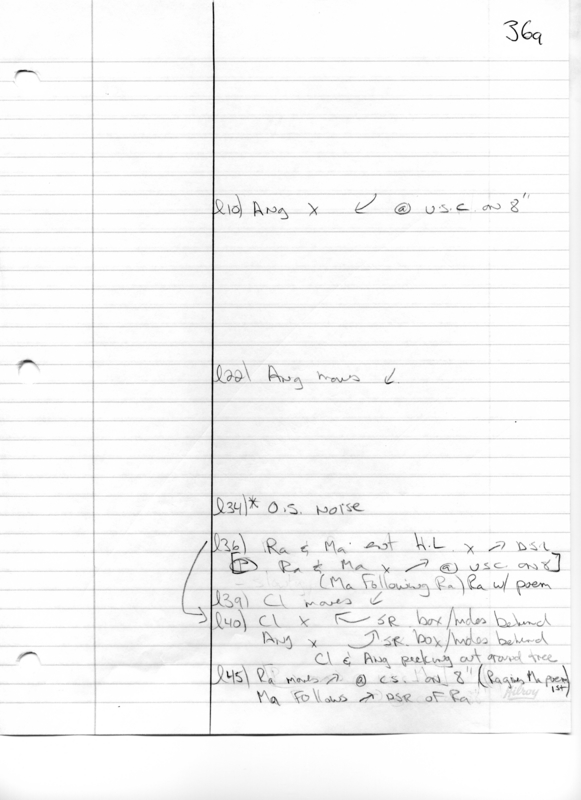 36a
l10) Ang x ↙ @ U.S.C. on 8"
l22) Ang moves ↙
l34)* O.S. Noise
l36) Ra & Ma H.L. x ↗ D.S.L
[P Ra & Ma x ↗ @ USC on 8]
(Ma Following Ra) Ra w/ poem
l39) Cl moves ↙
l40) Cl x SR box/hides behind
Ang x SR box/hides behind
Cl & Ang peeking out around tree
l45) Ra moves ↗ @ C.S. on 8" (Ra gives Ma poem 1st)
Ma Follows ↗ DSR of Ra